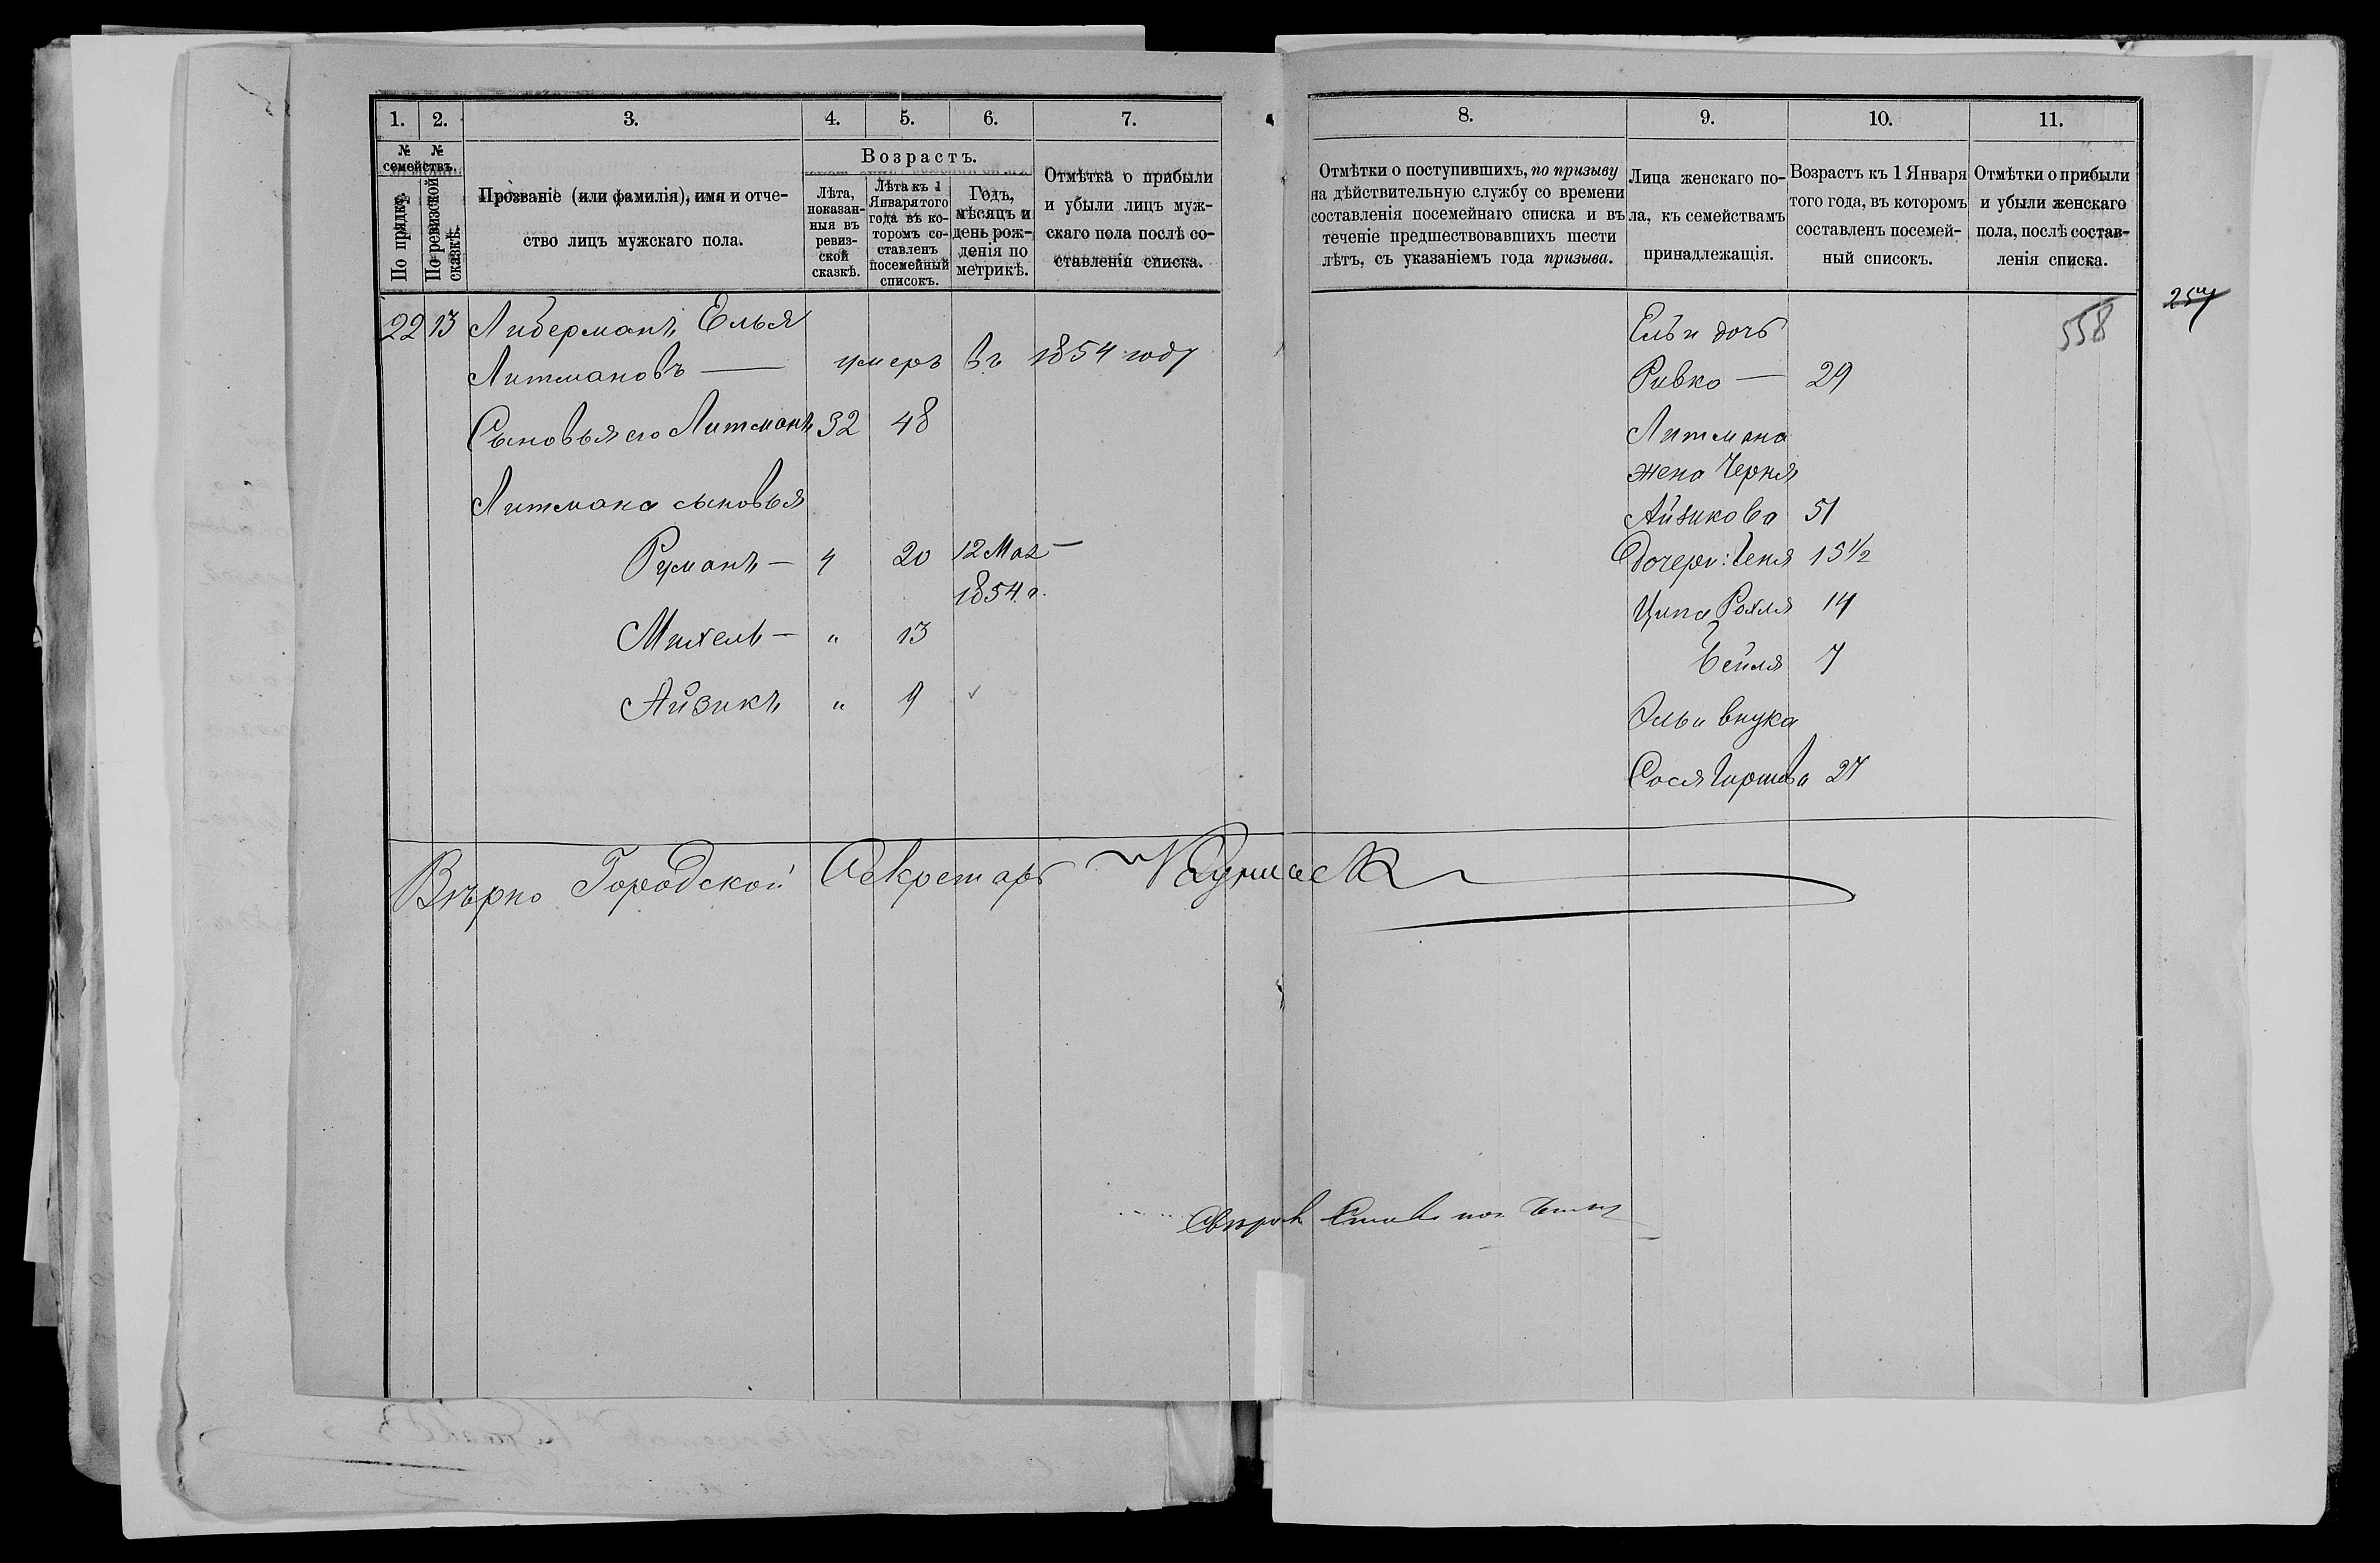 1. 2. 3. 4. 5. 6. 7.
№ №
семействъ.
По прядку.
По ревизской сказкѣ.
Прозваніе (или фамилія), имя и отче-
ство лицъ мужскаго пола.
Возрастъ.
Лѣта,
показан-
ныя въ
ревиз-
ской
сказкѣ.
Лѣта къ 1
Января того
года въ ко-
торомъ со-
ставленъ
посемейный
списокъ.
Годъ,
мѣсяцъ и
день рож-
денія по
метрикѣ.
Отмѣтка о прибыли
и убыли лицъ муж-
скаго пола послѣ со-
ставленія списка.
22 13 Либерманъ, Елья
Литмановъ — умеръ въ 1854 году
Сыновья его Литманъ 32 48
Литмана сыновья
Руманъ — 4 20 12 Мая —
1854 г.
Михель — „ 13
Айзикъ „ 9
8. 9. 10. 11.
Отмѣтки о поступившихъ, по призыву
на дѣйствительную службу со времени
составленія посемейнаго списка и въ
теченіе предшествовавшихъ шести
лѣтъ, съ указаніемъ года призыва.
Лица женскаго по-
ла, къ семействамъ
принадлежащія.
Возрастъ къ 1 Января
того года, въ которомъ
составленъ посемей-
ный списокъ.
Отмѣтки о прибыли
и убыли женскаго
пола, послѣ состав-
ленія списка.
257
558
Ельи дочь
Ривко — 29
Литмана
жена Черня
Айзикова 51
Дочери: Геня 15 1/2
Ципа Рохля 14
Бейля 7
Эльи внука
Сося Гиршова 27
Вѣрно Городской Секретарь